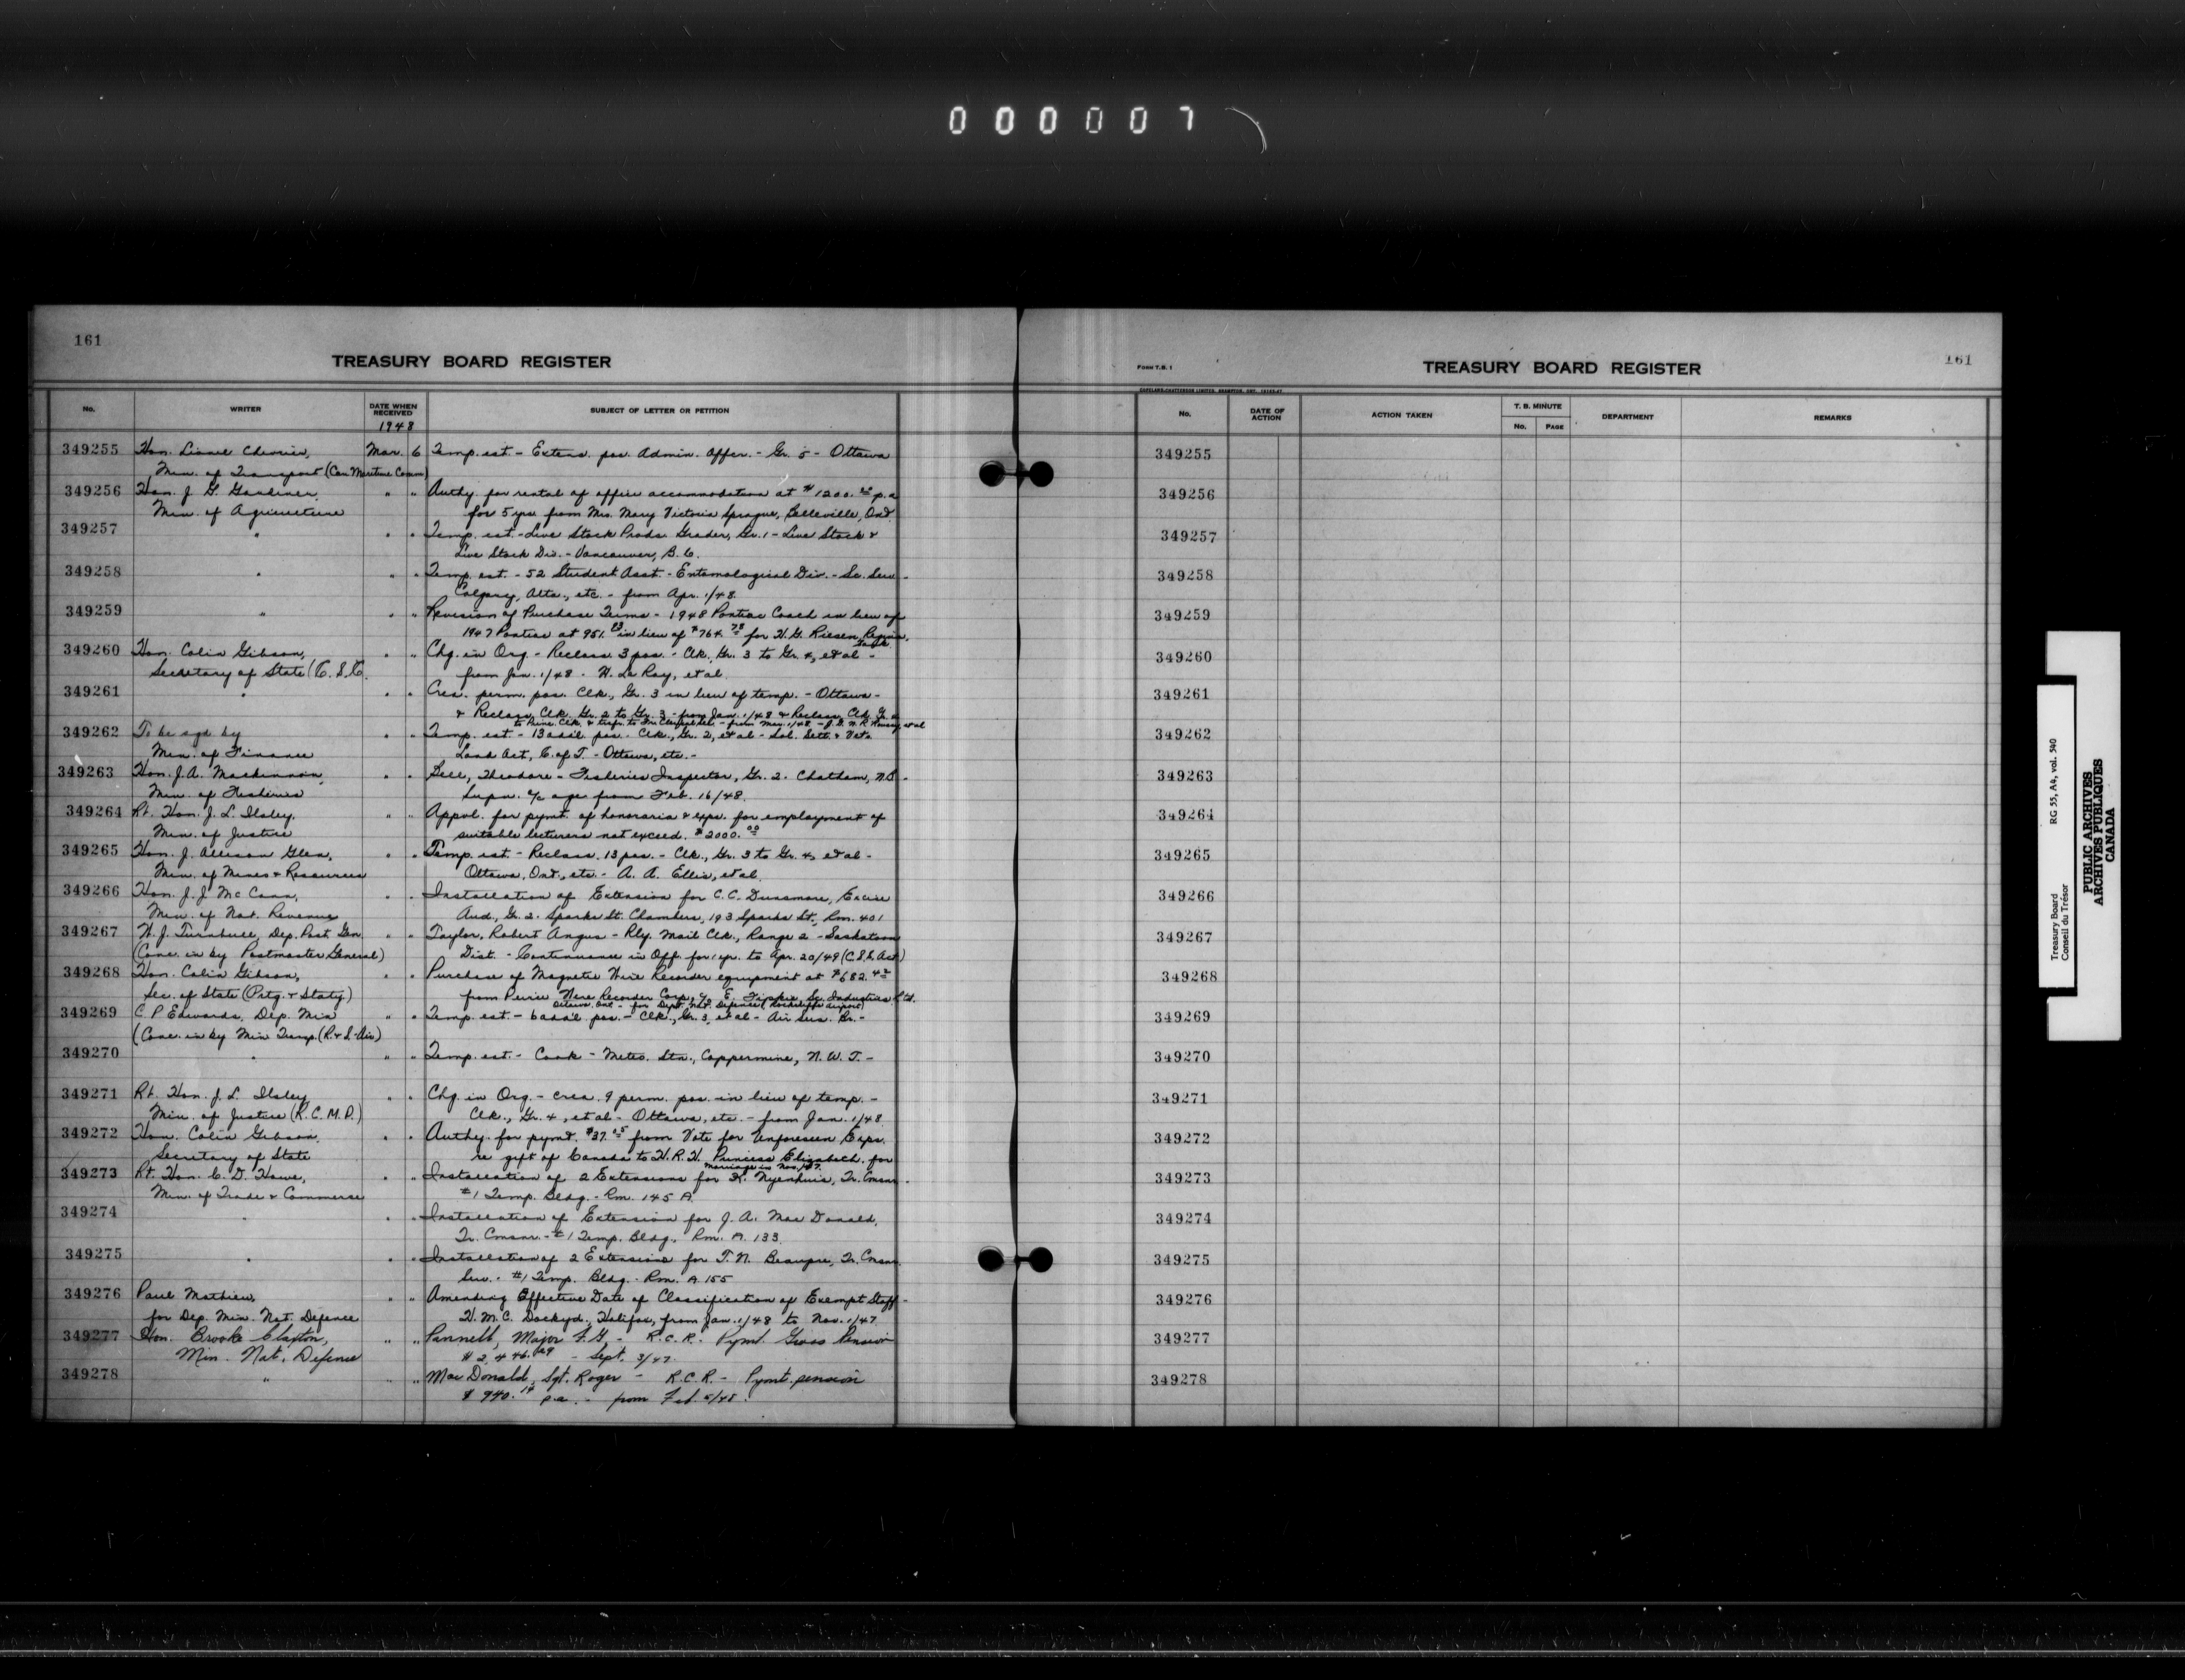 000007
161
TREASURY BOARD REGISTER
No. WRITER DATE WHEN RECEIVED SUBJECT OF LETTER OR PETITION
1948
349255 Hon. Lionel Chevrier, Mar. 6 Temp. est. - Extens. pos. Admin. Offcr. - Gr. 5 - Ottawa
Min. of Transport (Can. Maritime Comm)
349256 Hon. J. G. Gardiner, " " Authy. for rental of office accommodation at $1200.00 p.a
Min. of Agriculture for 5 yrs from Mrs. Mary Victoria Sprague, Belleville, Ont.
349257 " " " Temp. est. - Live Stock Prods. Grader, Gr. 1 - Live Stock &
Live Stock Div. - Vancouver, B.C.
349258 " " " Temp. est. - 52 Student Asst. - Entomological Div. - Sc. Serv. -
Calgary, Alta., etc. - from Apr. 1/48.
349259 " " " Revision of Purchase Terms - 1948 Pontiac Coach in lieu of
1947 Pontiac at 951. in lieu of $764.78 for H. G. Riesen, Regina,
Sask.
349260 Hon. Colin Gibson, " " Chg. in Org. - Reclass. 3 pos. - Clk., Gr. 3 to Gr. 4, et al -
Secretary of State (C.S.C. from Jan. 1/48 - H. La Ray, et al.
349261 " " " Crea. perm. pos. Clk., Gr. 3 in lieu of temp. - Ottawa -
& Reclass. Clk. Gr. 2 to Gr. 3 - from Jan. 1/48 & Reclass. Clk. Gr.
to Princ. Clk. & trsfr. to
349262 To be sgd by " " Temp. est. - 13 add'l. pos. - Clk., Gr. 2, et al - Sol. Sett. & Vets.
Min. of Finance Land Act, C. of T. - Ottawa, etc. -
349263 Hon. J. A. MacKinnon, " " Theodore - Fisheries Inspector, Gr. 2 - Chatham, N.B. -
Min. of Fisheries Supn. a/c age from Feb. 16/48.
349264 Rt. Hon. J. L. Ilsley, " " Appvl. for pymt. of honoraria & exps. for employment of
Min. of Justice suitable lecturers not exceed. $2000.00
349265 Hon. J. Allison Glen, " " Temp. est. - Reclass. 13 pos. - Clk., Gr. 3 to Gr. 4, et al -
Min. of Mines & Resources Ottawa, Ont., etc. - A. A. Ellis, et al.
349266 Hon. J. J. McCann, " " Installation of Extension for C. C. Dunsmore, Excise
Min. of Nat. Revenue Aud., Gr. 2 - Sparks St. Chambers, 193 Sparks St., Rm. 401
349267 W. J. Turnbull, Dep. Post. Gen. " " Taylor, Robert Angus - Rly. Mail Clk., Range 2 - Saskatoon
(Conc. in by Postmaster General) Dist. - Continuance in Off. for 1 yr. to Apr. 20/49 (C.S.S. Act)
349268 Hon. Colin Gibson, " " Purchase of Magnetic Wire Recorder equipment at $682.42
Sec. of State (Prtg. & Staty.) from Peirce Wire Recorder Corp., c/o E. Sc. Industries Ltd.
Ottawa, Ont. - for Dept. Nat. Defence (Rockcliffe Airport)
349269 C. P. Edwards, Dep. Min " " Temp. est. - 6 add'l. pos. - Clk., Gr. 3, et al - Air Serv. Br. -
(Conc. in by Min Transp. (R & S - Air)
349270 " " " Temp. est. - Cook - Meteo. Stn., Coppermine, N.W.T. -
349271 Rt. Hon. J. L. Ilsley " " Chg. in Org. - crea. 9 perm. pos. in lieu of temp. -
Min. of Justice (R.C.M.P.) Clk., Gr. 4, et al - Ottawa, etc. - from Jan. 1/48.
349272 Hon. Colin Gibson, " " Authy. for pymt. $37.05 from Vote for Unforeseen Exps.
Secretary of State re gift of Canada to H.R.H. Princess Elizabeth for
marriage in Nov./47.
349273 Rt. Hon. C. D. Howe, " " Installation of 2 Extensions for K. Nyenhuis, Tr. Cmsnr. -
Min. of Trade & Commerce #1 Temp. Bldg. - Rm. 145 A
349274 " " " Installation of Extension for J. A. MacDonald,
Tr. Cmsnr. - #1 Temp. Bldg., Rm. A. 133.
349275 " " " Installation of 2 Extensions for T. N. Beaupre, Tr. Cmsnr.
Serv. - #1 Temp. Bldg. - Rm. A 155
349276 Paul Mathieu, " " Amending Effective Date of Classification of Exempt Staff -
for Dep. Min. Nat. Defence H.M.C. Dockyd, Halifax, from Jan. 1/48 to Nov. 1/47
349277 Hon. Brooke Claxton, " " Pannell, Major F. G. - R.C.R. - Pymt. Gross Pension
Min. Nat. Defence $2,446.29 - Sept. 3/47.
349278 " " " MacDonald, Sgt. Roger - R.C.R. - Pymt. pension
$940.14 p.a. - from Feb. 5/48.
FORM T.B. 1
TREASURY BOARD REGISTER
161
No. DATE OF ACTION ACTION TAKEN T. B. MINUTE No. PAGE DEPARTMENT REMARKS
349255
349256
349257
349258
349259
349260
349261
349262
349263
349264
349265
349266
349267
349268
349269
349270
349271
349272
349273
349274
349275
349276
349277
349278
Treasury Board RG 55, A4, vol. 540
Conseil du Trésor
PUBLIC ARCHIVES
ARCHIVES PUBLIQUES
CANADA